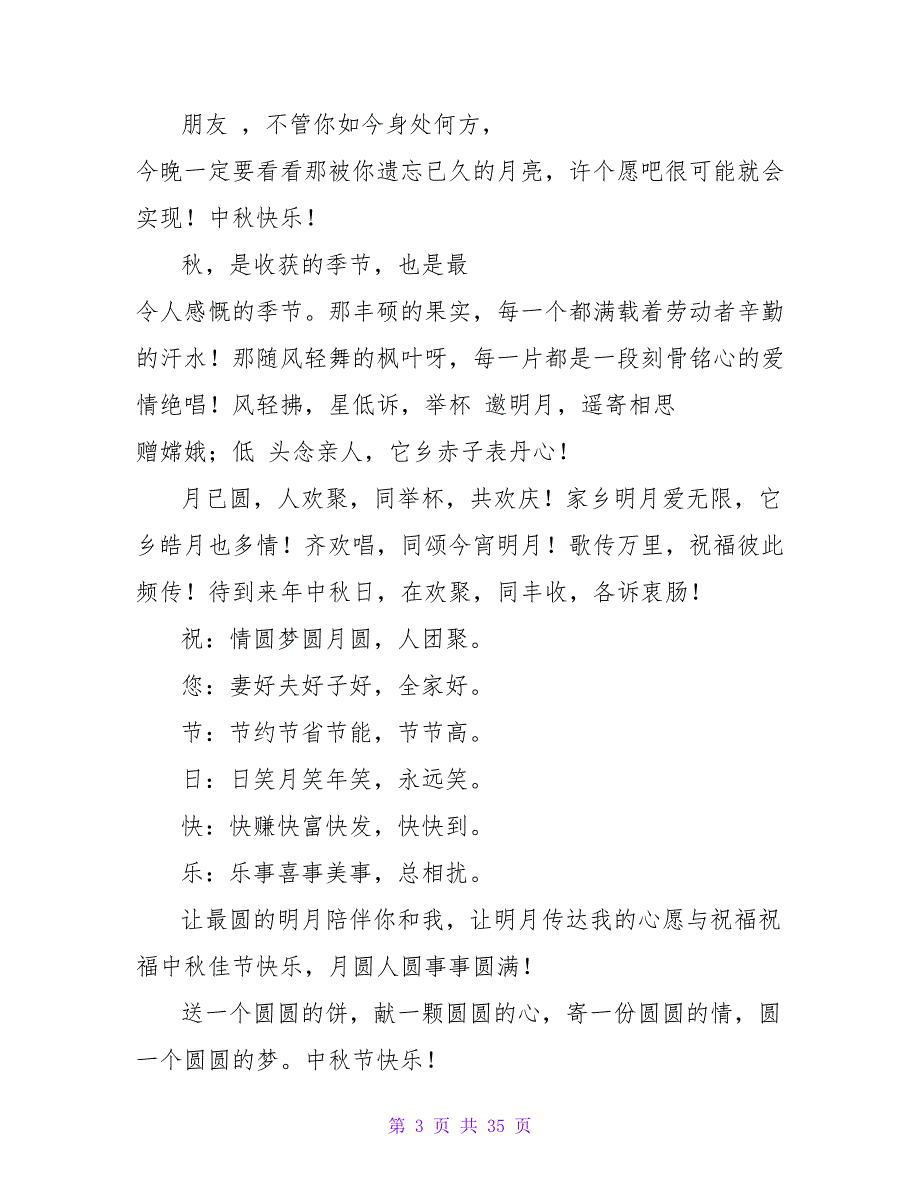 朋友 ，不管你如今身处何方，
今晚一定要看看那被你遗忘已久的月亮，许个愿吧很可能就会
实现！中秋快乐！
秋，是收获的季节，也是最
令人感慨的季节。那丰硕的果实，每一个都满载着劳动者辛勤
的汗水！那随风轻舞的枫叶呀，每一片都是一段刻骨铭心的爱
情绝唱！风轻拂，星低诉，举杯 邀明月，遥寄相思
赠嫦娥；低 头念亲人，它乡赤子表丹心！
月已圆，人欢聚，同举杯，共欢庆！家乡明月爱无限，它
乡皓月也多情！齐欢唱，同颂今宵明月！歌传万里，祝福彼此
频传！待到来年中秋日，在欢聚，同丰收，各诉衷肠！
祝：情圆梦圆月圆，人团聚。
您：妻好夫好子好，全家好。
节：节约节省节能，节节高。
日：日笑月笑年笑，永远笑。
快：快赚快富快发，快快到。
乐：乐事喜事美事，总相扰。
让最圆的明月陪伴你和我，让明月传达我的心愿与祝福祝
福中秋佳节快乐，月圆人圆事事圆满！
送一个圆圆的饼，献一颗圆圆的心，寄一份圆圆的情，圆
一个圆圆的梦。中秋节快乐！
第 3 页 共 35 页